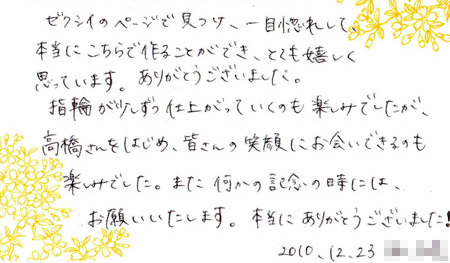 ゼクシィのページで見つけ、一目惚れして、
本当にこちらで作ることができ、とても嬉しく
思っています。ありがとうございました。
指輪が少しずつ仕上がっていくのも楽しみでしたが、
高橋さんをはじめ、皆さんの笑顔にお会いできるのも
楽しみでした。また何かの記念の時には、
お願いいたします。本当にありがとうございました!!
2010.12.23